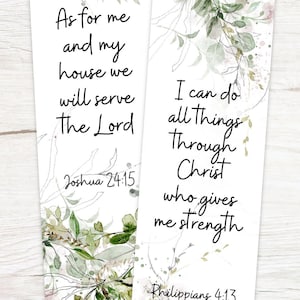 As for me
and my
house we
will serve
the Lord
Joshua 24:15
I can do
all things
through
Christ
who gives
me strength
Philippians 4:13